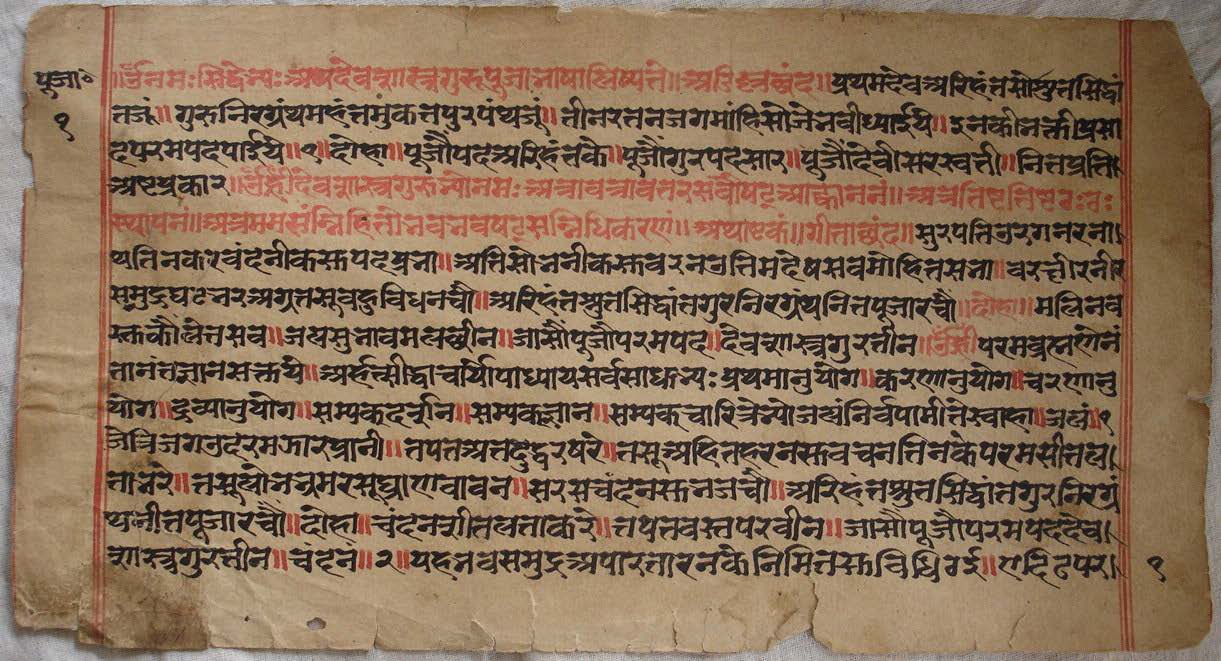 पूजा॰
१
॥ॐनमःसिद्धेभ्यः॥अथदेवशास्त्रगुरूपूजाभाषालिष्यते॥अडिल्लछंद॥प्रथमदेवअरिहंतसोश्रुतसिद्धां
तजूं॥गुरुनिरग्रंथमहंतमुकतपुरपंथजूं॥तीनरतनजगमांहिसोजेनवीध्याईये॥इनकीभक्तीप्रसा
दपरमपदपाईये॥१॥दोहा॥पूजौंपदअरिहंतके॥पूजौंगुरपदसार॥पूजौंदेवीसरस्वती॥नितप्रति
अष्टप्रकार॥ॐह्रींदेवशास्त्रगुरुभ्योनमः अत्रावत्रावतरसंवौषट्आह्वाननं॥अत्रतिष्टतिष्टठःठः
स्थापनं॥अत्रममसंन्निहितोभवभववषट्सन्निधिकरणं॥अथाष्टकं॥गीताछंद॥सुरपतिउरगनरना
थतिनकरवंदनीकसुपदप्रभा॥अतिसोभनीकसुवरनउतिमदेषसवमोहितसभा॥वरत्तीरनीर
समुद्रघटभरअग्रतसूवहुविधनचौं॥अरिहंतश्रुतसिद्धांतगुरनिरग्रंथनितपूजारचौं॥दोहा॥मलिनव
स्तकौंलेतसव॥जलसुभावमलछीन॥जासौंपूजौंपरमपद॥देवशास्त्रगुरतीन॥ॐह्रीं परमब्रह्मणेनं
तानंतज्ञानसक्तये॥अर्हत्सीद्धाचर्योपाध्यायसर्वसाधुभ्यः प्रथमानुयोग॥करणानुयोग॥चरणानु
योग॥द्रव्यानुयोग॥सम्यकदर्शन॥सम्यकज्ञान॥सम्यकचारित्रेभ्योजलंनिर्वपामीतेस्वाहा॥जलं॥१
जेत्रिजगउदरमझारप्रानी॥तपतअतदुद्धरषरे॥तसूअहितहरनसुवचनतिनकेपरमसीतल
ताभरे॥तसूलोभभ्रमरसूघ्राणवावन॥सरसचंदनसुनजचौं॥अरिहंतश्रुतसिद्धांतगुरनिरग्रं
थनीतपूजारचौं॥दोहा॥चंदनशीतलताकरे॥तपतवस्तपरवीन॥जासौंपूजौंपरमपददेव
शास्त्रगुरतीन॥चंदनं॥२॥यहभवसमुद्रअपारतारनकेनिमितसुविधिठई॥ १